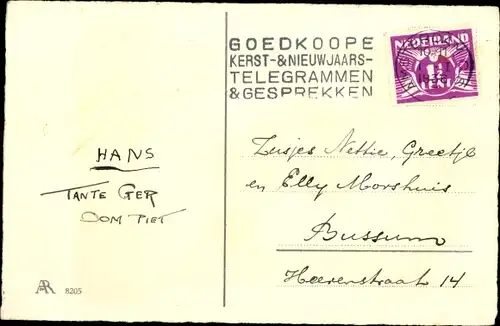 GOEDKOOPE
KERST-&NIEUWJAARS-
TELEGRAMMEN
&GESPREKKEN
NEDERLAND
HANS
TANTE GER
OOM PIET
Zusjes Nettie, Greetje
en Elly Morshuis
Bussum
Heerenstraat 14
AR 8205